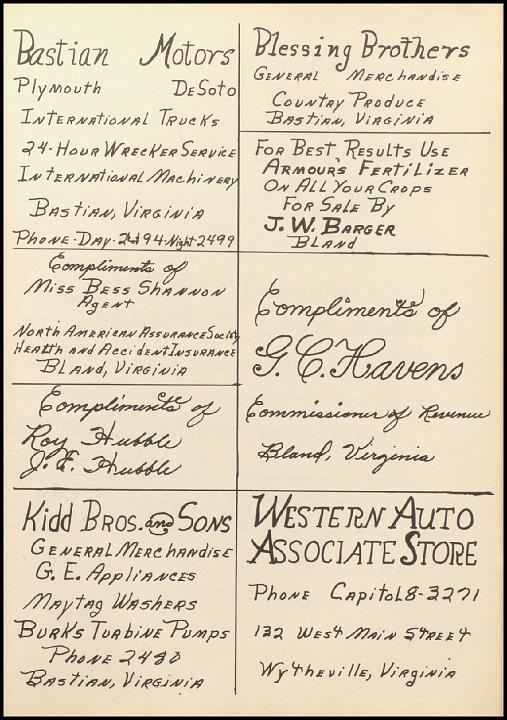 Bastian Motors
Plymouth DeSoto
International Trucks
24-Hour Wrecker Service
International Machinery
Bastian, Virginia
Phone-Day-2494-Night-2499
Compliments of
Miss Bess Shannon
Agent
North American Assurance Society
Health and Accident Insurance
Bland, Virginia
Compliments of
Roy Hubble
J. E. Hubble
Kidd Bros. and Sons
General Merchandise
G. E. Appliances
Maytag Washers
Burks Turbine Pumps
Phone 2480
Bastian, Virginia
Blessing Brothers
General Merchandise
Country Produce
Bastian, Virginia
For Best Results Use
Armour's Fertilizer
On All Your Crops
For Sale By
J. W. Barger
Bland
Compliments of
G. C. Havens
Commissioner of Revenue
Bland, Virginia
Western Auto
Associate Store
Phone Capitol 8-3271
132 West Main Street
Wytheville, Virginia